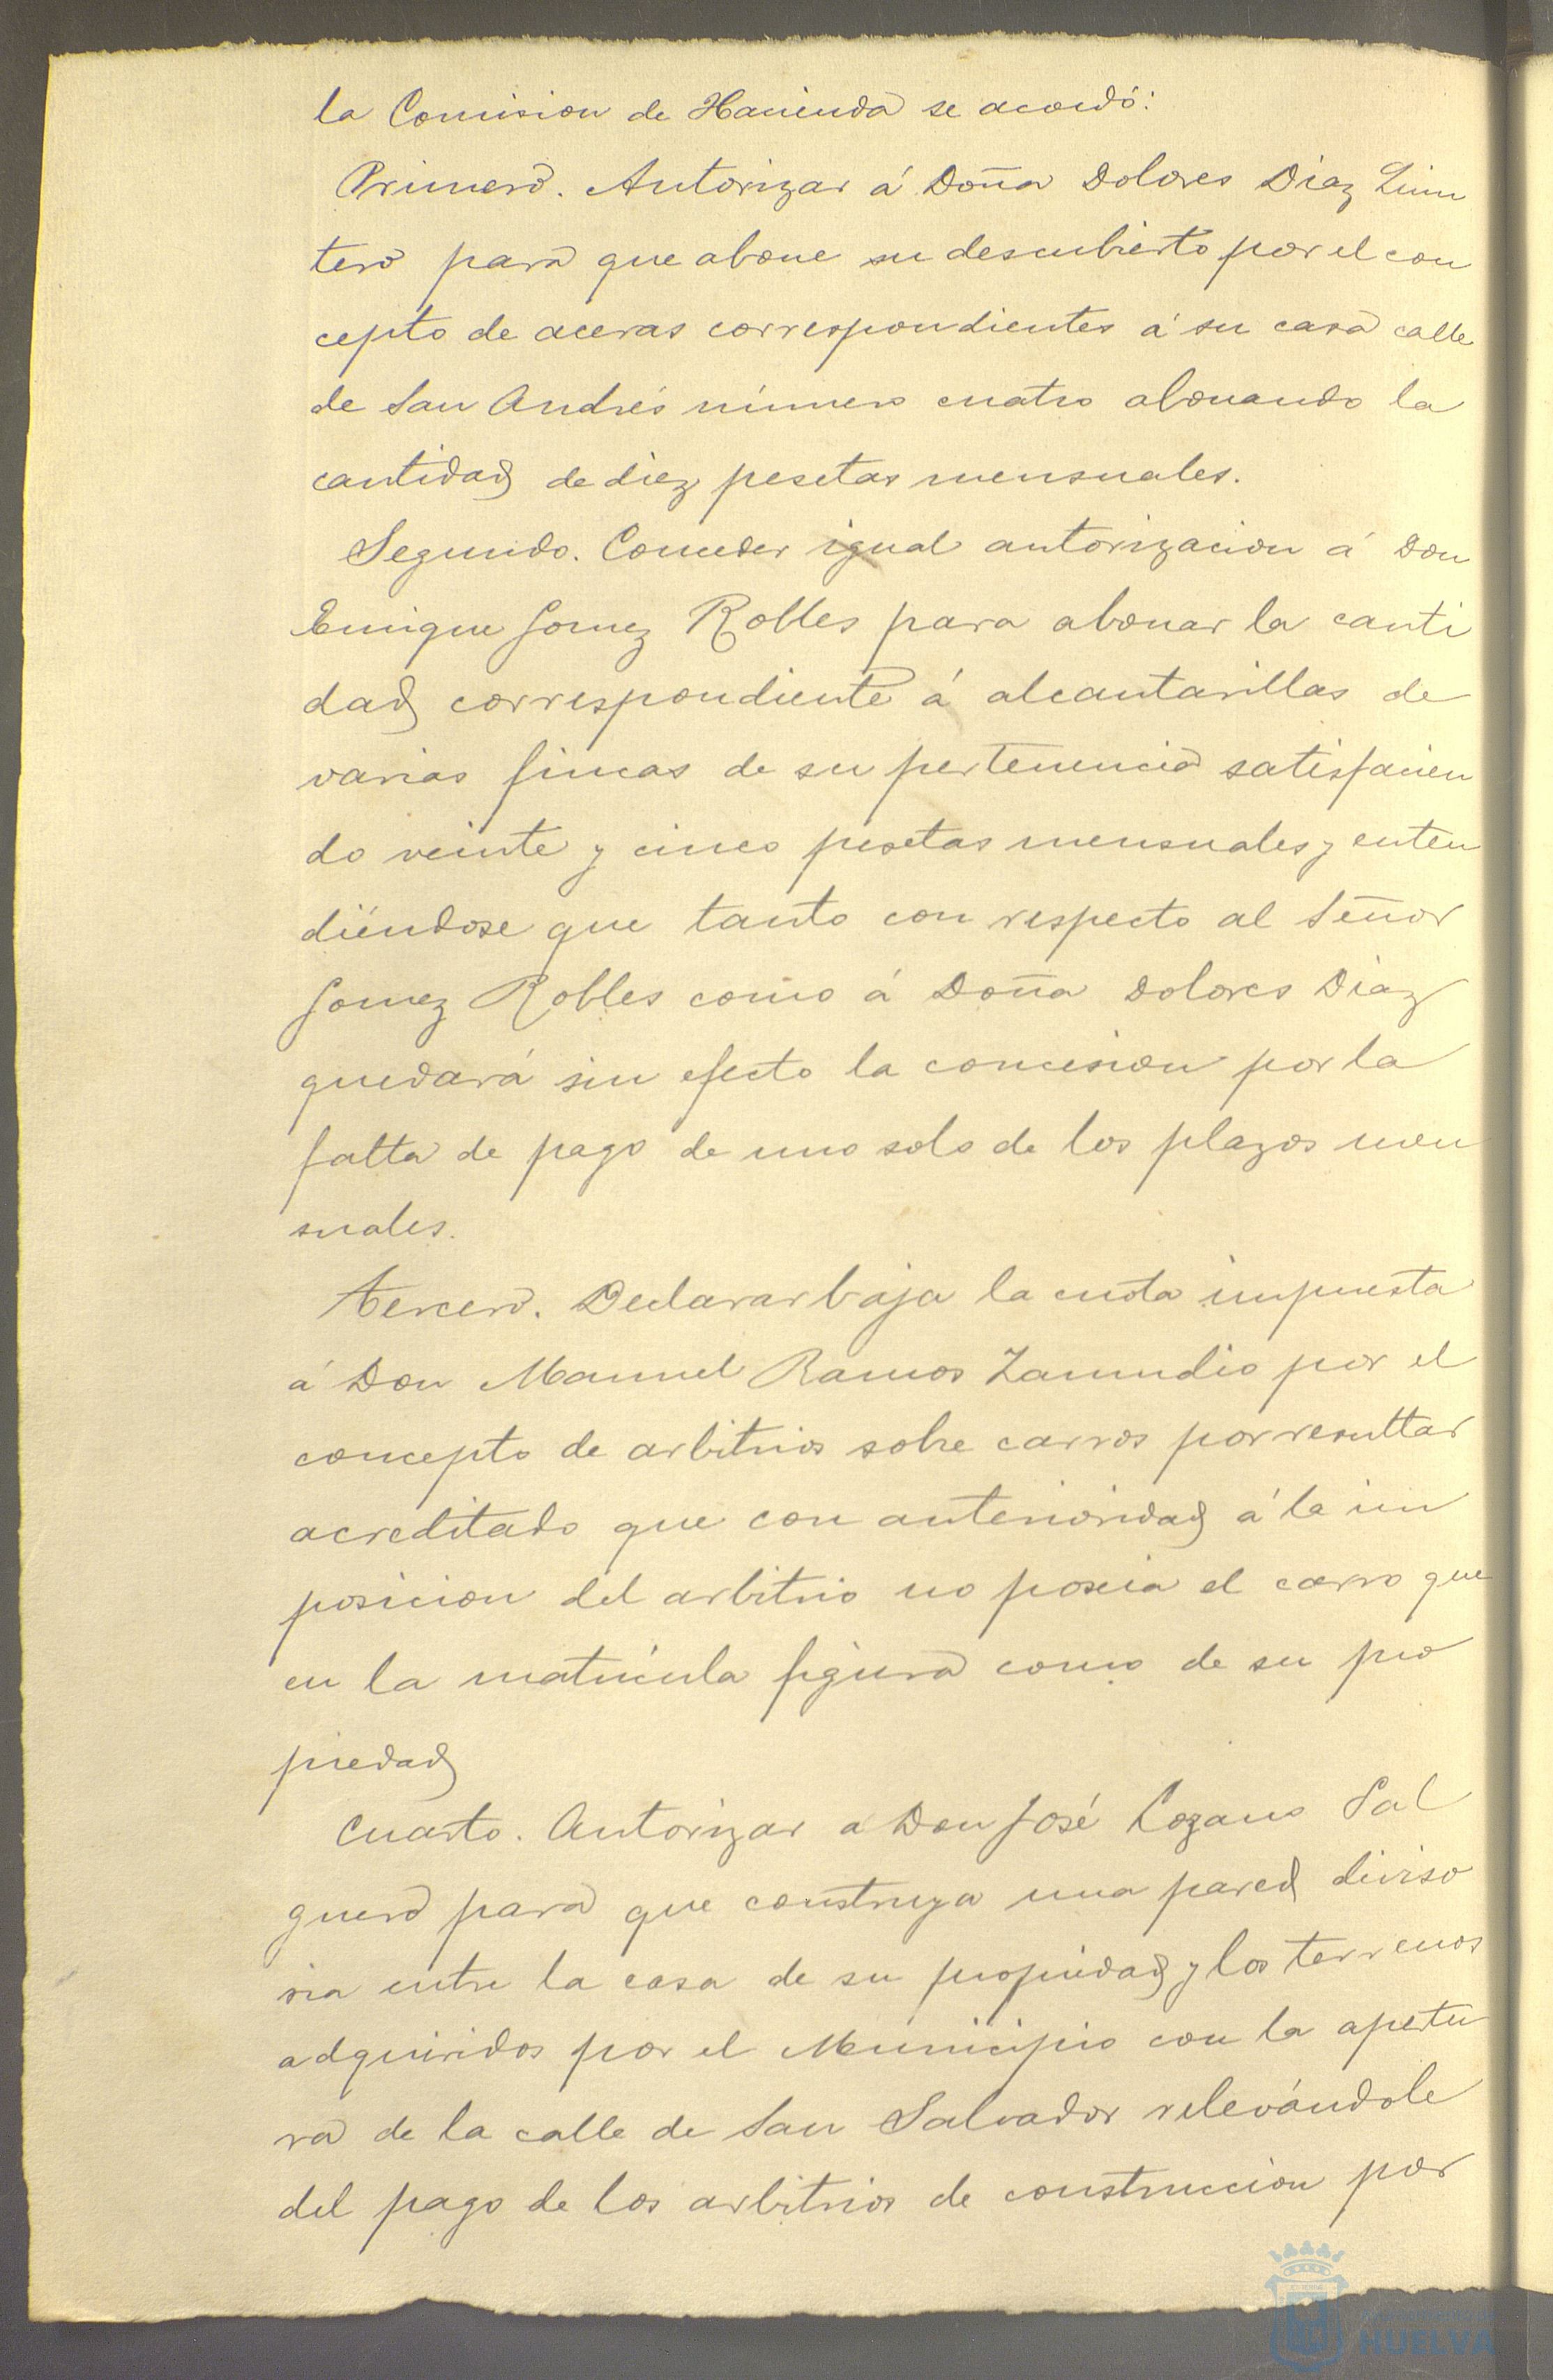 la Comision de Hacienda se acordó:
Primero. Autorizar á Doña Dolores Diaz Quin
tero para que abone su descubierto por el con
cepto de aceras correspondientes á su casa calle
de San Andrés número cuatro abonando la
cantidad de diez pesetas mensuales.
Segundo. Conceder igual autorizacion á Don
Enrique Gomez Robles para abonar la canti
dad correspondiente á alcantarillas de
varias fincas de su pertenencia satisfacien
do veinte y cinco pesetas mensuales y enten
diéndose que tanto con respecto al Señor
Gomez Robles como á Doña Dolores Diaz
quedará sin efecto la concesion por la
falta de pago de uno solo de los plazos men
suales.
Tercero. Declarar baja la cuota impuesta
á Don Manuel Ramos Zamudio por el
concepto de arbitrios sobre carros por resultar
acreditado que con anterioridad á la im
posicion del arbitrio no poseia el carro que
en la matrícula figura como de su pro
piedad
Cuarto. Autorizar a Don José Lozano Sal
guero para que construya una pared diviso
ria entre la casa de su propiedad y los terrenos
adquiridos por el Municipio con la apertu
ra de la calle de San Salvador relevándole
del pago de los arbitrios de construccion por
HUELVA